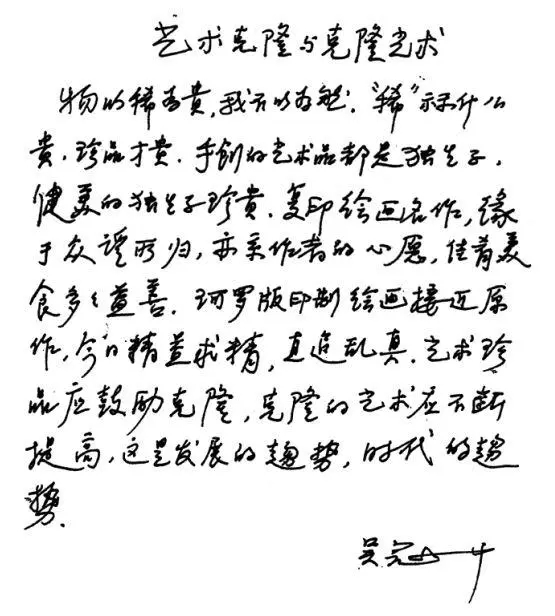 艺术克隆与克隆艺术
物以稀为贵，我不以为然。“稀”算什么
贵，珍品才贵。手创的艺术品都是独生子，
健美的独生子珍贵。复印绘画名作，缘
于众望所归，亦系作者的心愿，佳肴美
食多多益善。珂罗版印制绘画接近原
作，今日精益求精，直追乱真。艺术珍
品应鼓励克隆，克隆的艺术应不断
提高，这是发展的趨势，时代的趨
势。
吴冠中